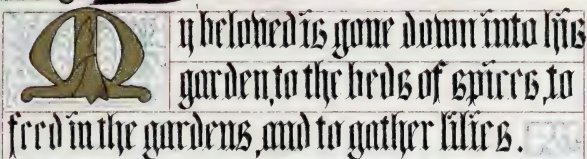 My beloved is gone down into his
garden, to the beds of spices, to
feed in the gardens, and to gather lilies.